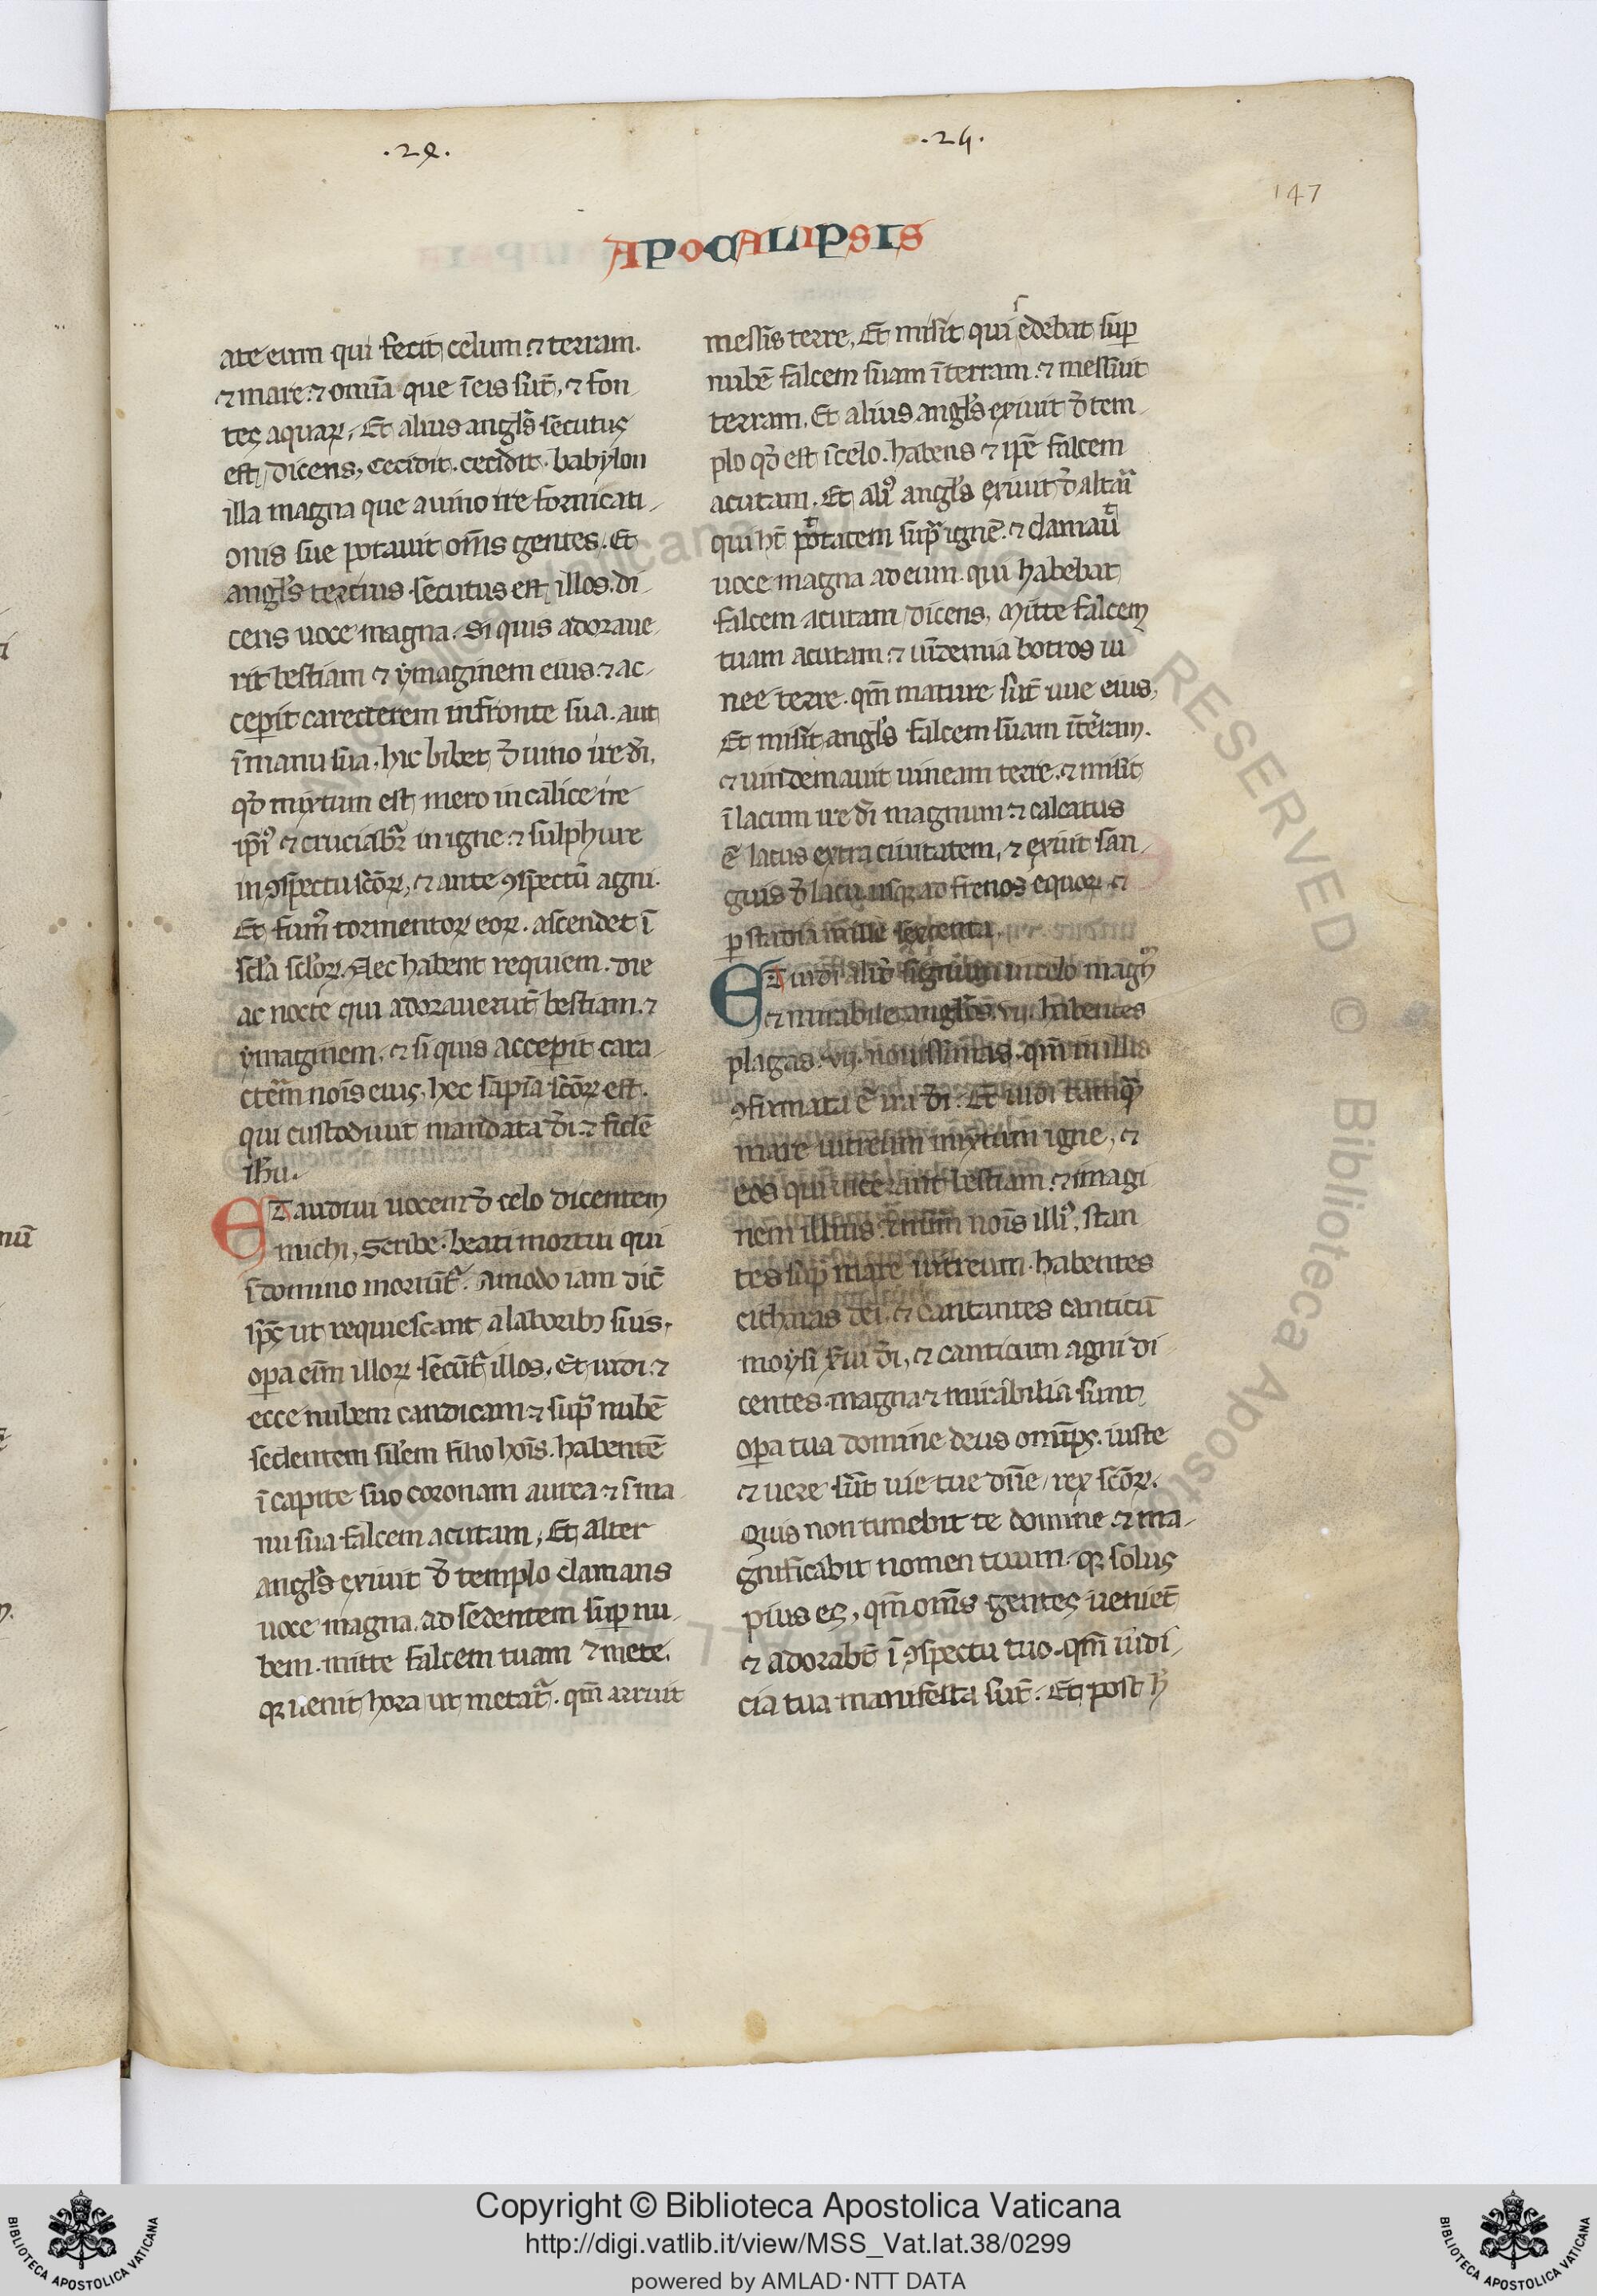 .28.
.24.
147
APOCALIPSIS
ate eum qui fecit celum ⁊ terram.
⁊ mare. ⁊ omīa que ī eis sūt, ⁊ fon
tes aquaꝝ. Et alius angl̄s secutus
est, dicens, cecidit. cecidit. babylon
illa magna que a uino ire fornicati
onis sue potauit om̄s gentes. Et
angl̄s tertius secutus est illos. di
cens uoce magna. Si quis adoraue
rit bestiam ⁊ ẏmaginem eius. ⁊ ac
ceperit carecterem in fronte sua. aut
ī manu sua. hic bibet đ uino ire dī.
qđ mixtum est mero in calice ire
ip̄iꝰ ⁊ cruciabr̄ in igne. ⁊ sulphure
in ꝯspectu sc̄oꝝ, ⁊ ante ꝯspectū agni.
Et fumꝰ tormentoꝝ eoꝝ. ascendet ī
sc̄la sc̄loꝝ. Nec habent requiem. die
ac nocte qui adorauerūt bestiam. ⁊
ẏmaginem, ⁊ si quis acceperit cara
ctem̄ nōis eius, hec sapīa sc̄oꝝ est.
qui custodiunt mandata dī. ⁊ fidē
ih̄u.
ET audiui uocem đ celo dicentem
michi, Scribe. beati mortui qui
ī domino moriūt᷑. Amodo iam dic̄
sp̄c ut requiescant a laboribꝫ suis.
oꝑa eīm illoꝝ secūt᷑ illos. Et uidi. ⁊
ecce nubem candidam ⁊ sup̄ nubē
sedentem sil̄em filio hōis. habentē
ī capite suo coronam aurea ⁊ ī ma
nu sua falcem acutam, Et alter
angl̄s exiuit đ templo clamans
uoce magna. ad sedentem suꝑ nu
bem. mitte falcem tuam ⁊ mete.
qꝛ uenit hora ut metat᷑. qm̄ arruit
messis terre, Et misit qui sedebat suꝑ
nubē falcem suam ī terram. ⁊ messuit
terram. Et alius angl̄s exiuit đ tem
plo qđ est ī celo. habens ⁊ ip̄e falcem
acutam. Et aliꝰ angl̄s exiuit đ altari
qui ht̄ potatem sup̄ ignē. ⁊ clamaūt
uoce magna ad eum. qui habebat
falcem acutam dicens, Mitte falcem
tuam acutam. ⁊ uīdemia botros ui
nee terre. qm̄ mature sūt uue eius,
Et misit angl̄s falcem suam ī terram.
⁊ uindemauit uineam terre. ⁊ misit
ī lacum ire dī magnum ⁊ calcatus
ē lacus extra ciuitatem, ⁊ exiuit san
guis đ lacu usqꝫ ad frenos equoꝝ. ⁊
ꝑ stadia mille sexcenta.
ET uidi aliđ signum in celo magm̄
⁊ mirabile. angl̄os. vij. habentes
plagas. vij. nouissimas. qm̄ in illis
ꝯfirmata ē ira dī. Et uidi tamqᷓ
mare uitreum mixtum igne, ⁊
eos qui uicerunt bestiam. ⁊ imagi
nem illius. ⁊ num̄ nōis illiꝰ, stan
tes sup̄ mare uitreum. habentes
citharas dei. ⁊ cantantes canticū
moẏsi s̄ui dī, ⁊ canticum agni di
centes. magna ⁊ mirabilia sunt
oꝑa tua domine deus omīps. iuste
⁊ uere sūt uie tue dn̄e, rex sc̄oꝝ.
Quis non timebit te domine. ⁊ ma
gnificabit nomen tuum. qꝛ solus
pius es, qm̄ om̄s gentes ueniēt
⁊ adorabt̄ ī ꝯspectu tuo. qm̄ iudi
cia tua manifesta sūt. Et post h̄
Copyright © Biblioteca Apostolica Vaticana
http://digi.vatlib.it/view/MSS_Vat.lat.38/0299
powered by AMLAD·NTT DATA
BIBLIOTECA APOSTOLICA VATICANA
BIBLIOTECA APOSTOLICA VATICANA